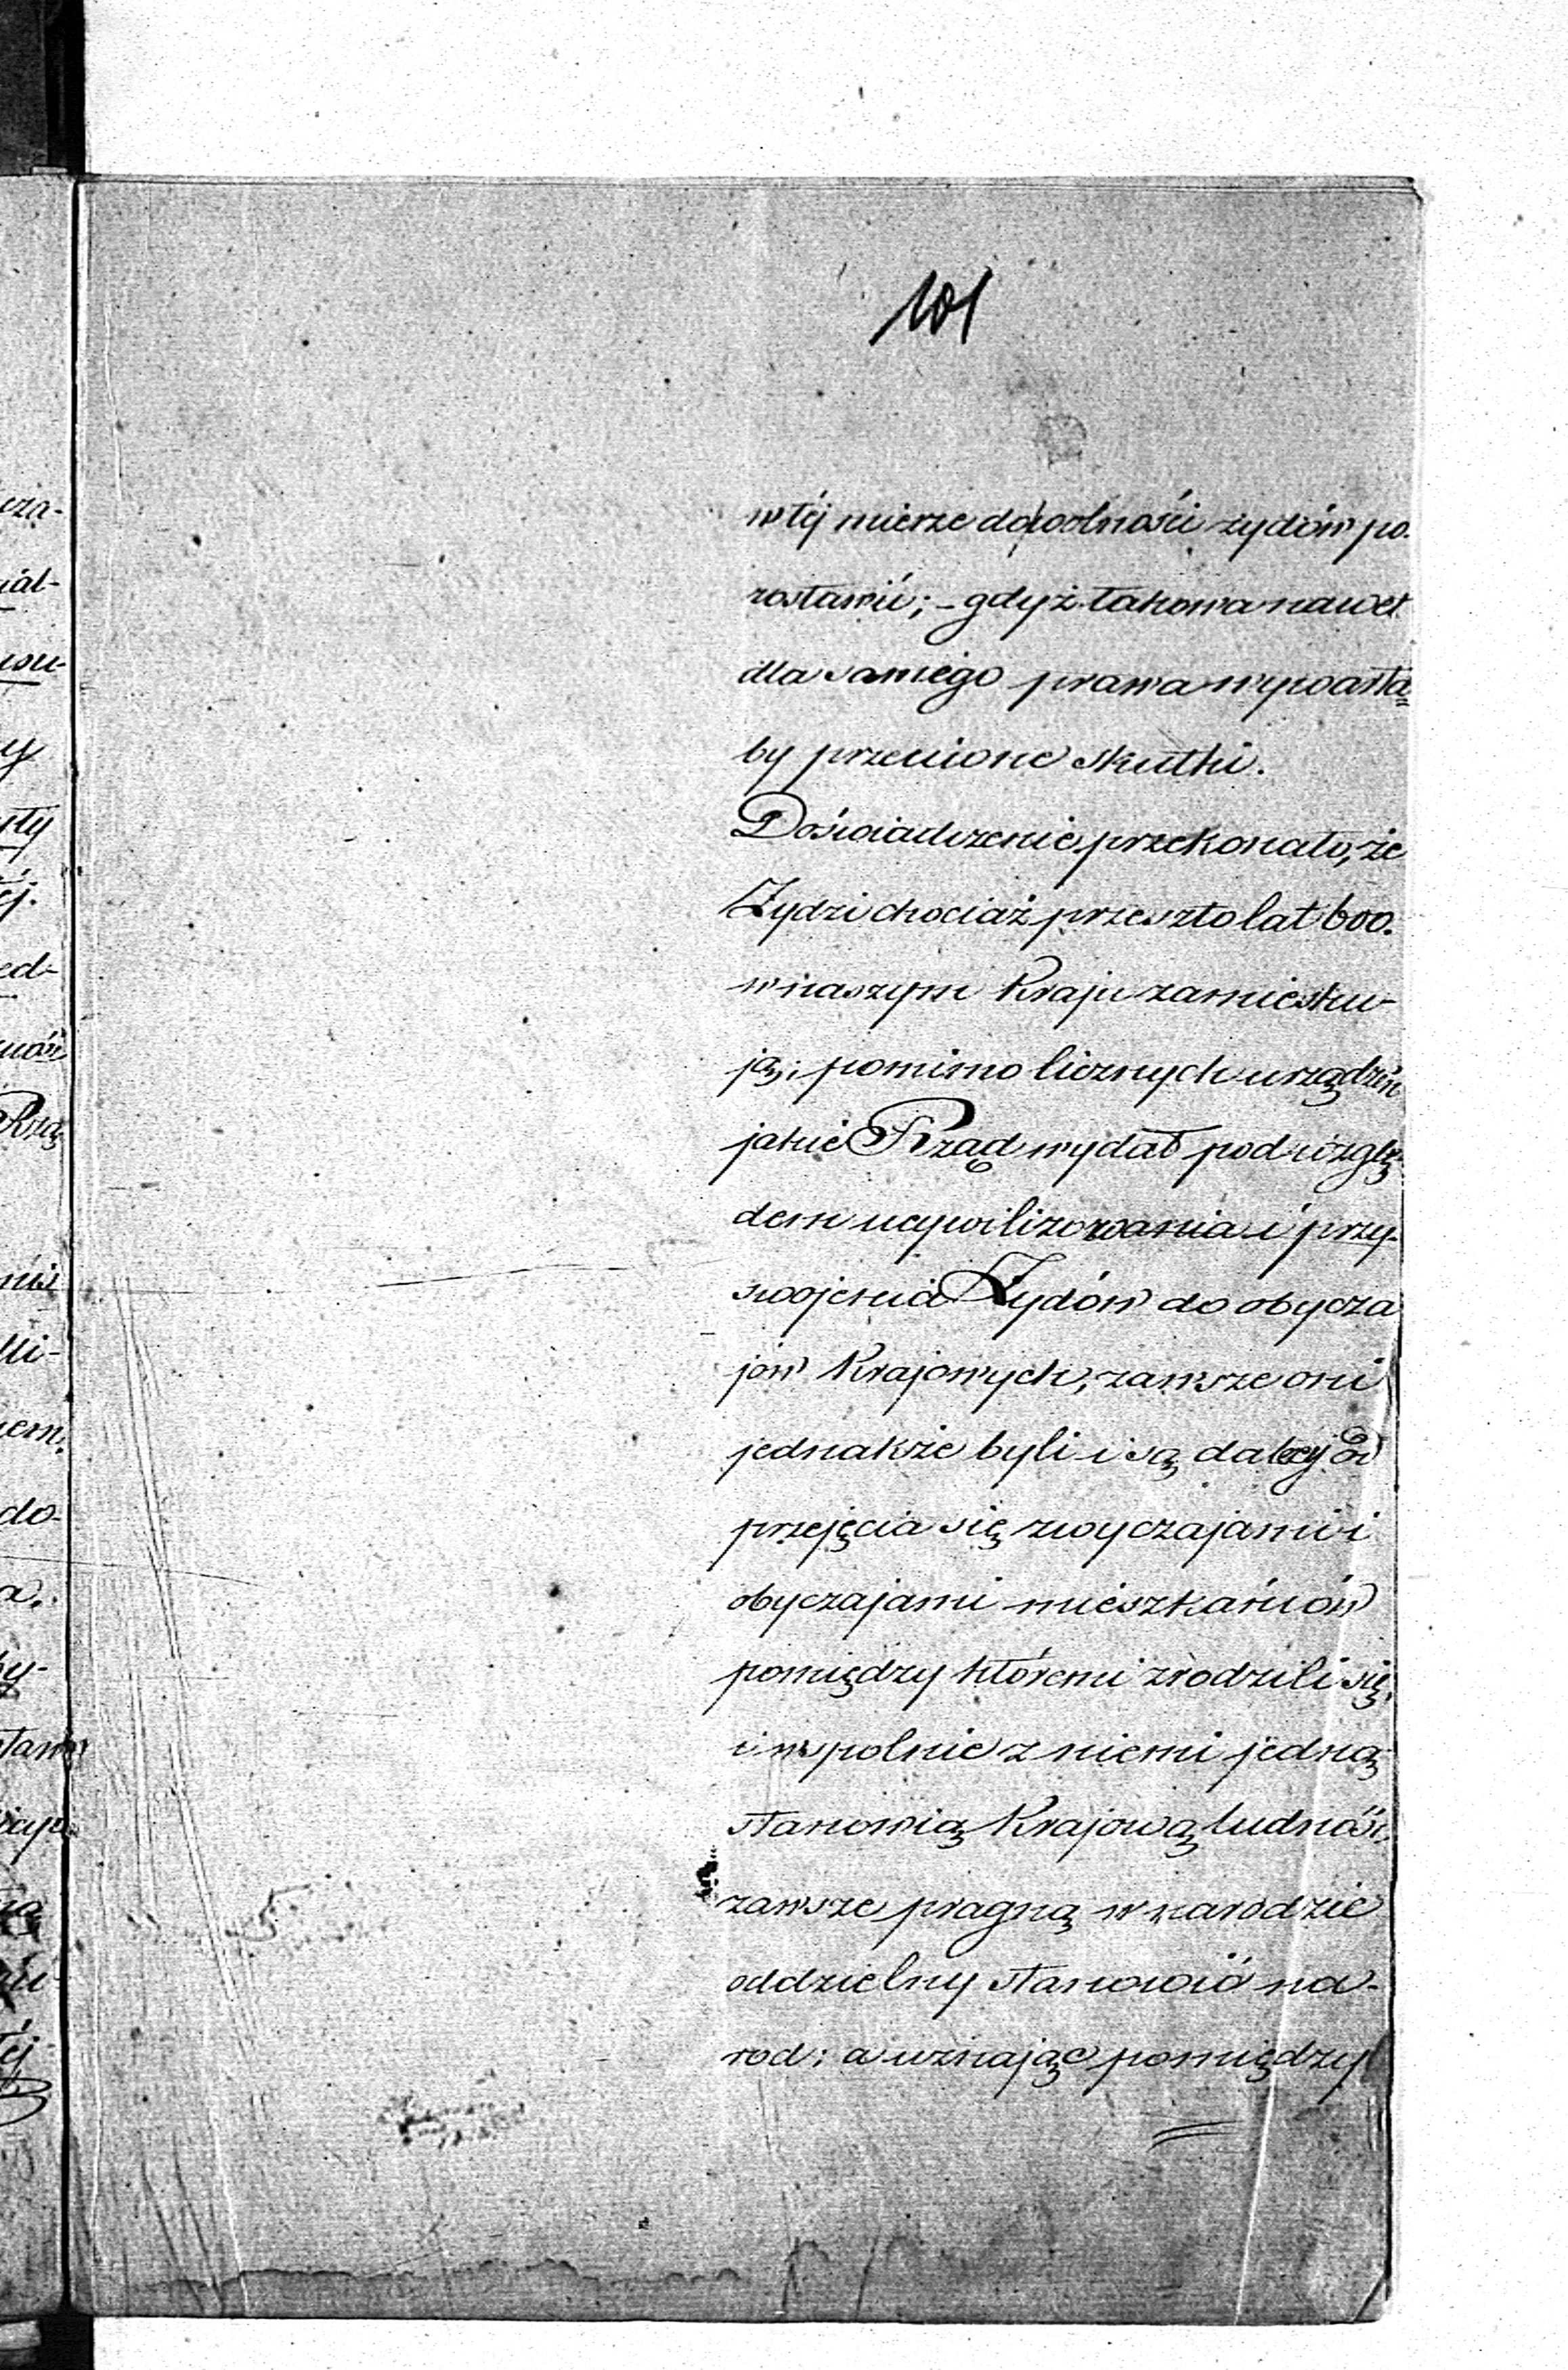 101
w téj mierze dowolności żydów po-
zostawić; – gdyż takowa nawet
dla samego prawa wywarła
by przeciwne skutki.
Doświadczenie przekonało, że
Żydzi chociaż przeszło lat 600.
w naszym Kraju zamieszku-
ją; pomimo licznych urządzeń
jakie Rząd wydał pod wzglę-
dem ucywilizowania i przy-
swojenia Żydów do obycza
jów Krajowych, zawsze oni
jednakże byli i są dalecy od
przejęcia się zwyczajami i
obyczajami mieszkańców
pomiędzy któremi zrodzili się,
i wspolnie z niemi jedną
stanowią Krajową ludność,
zawsze pragną w narodzie
oddzielny stanowić na-
rod; a uznając pomiędzy